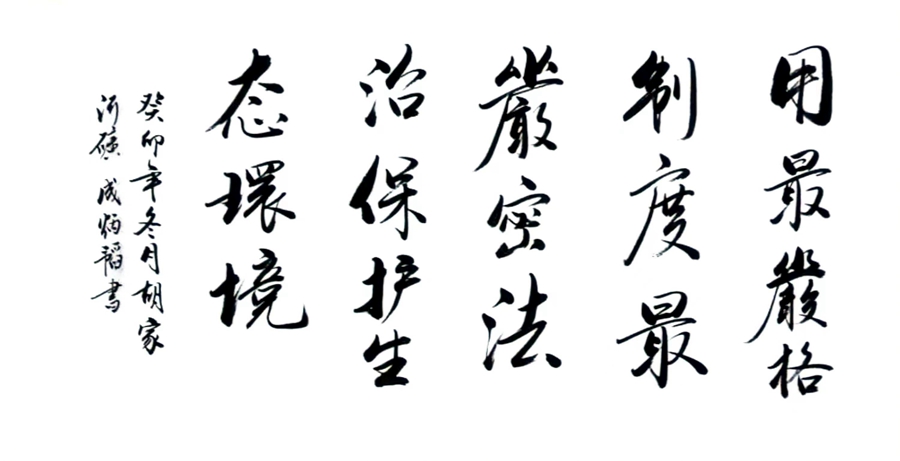 用最嚴格
制度最
嚴密法
治保护生
态環境
癸卯年冬月胡家
河礦成炳韜書